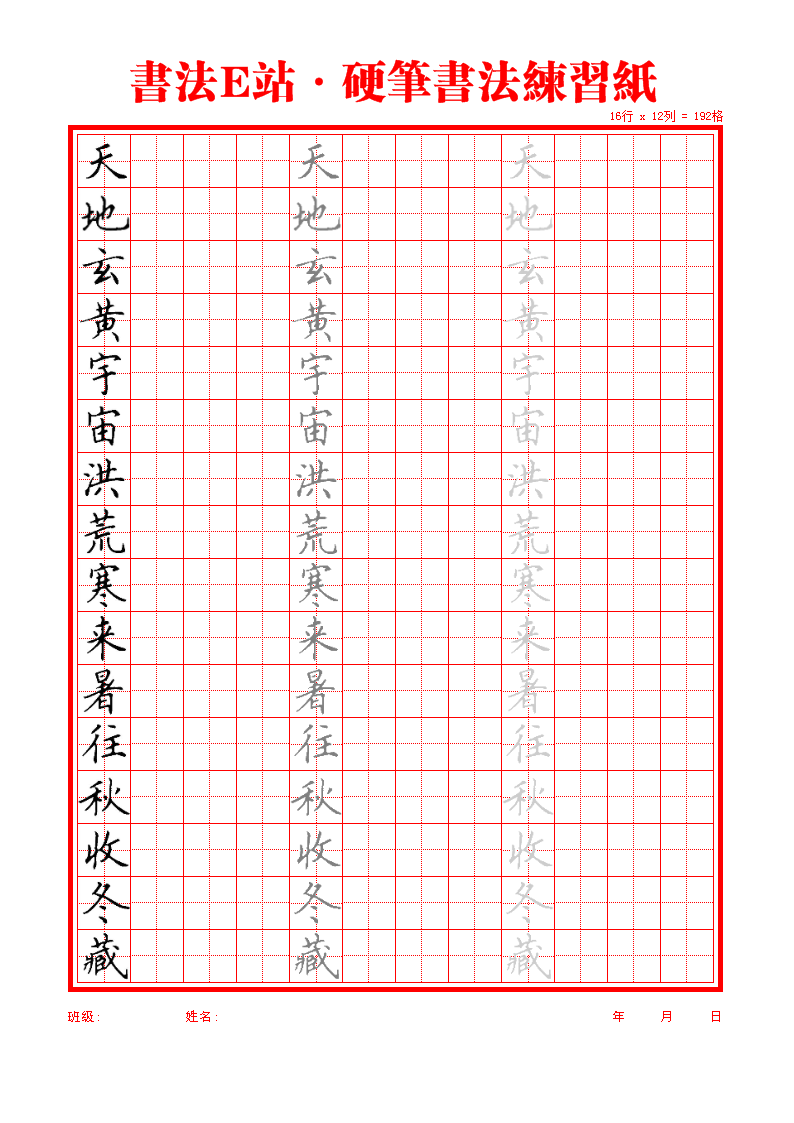 書法E站·硬筆書法練習紙
16行 x 12列 = 192格
天 天 天
地 地 地
玄 玄 玄
黄 黄 黄
宇 宇 宇
宙 宙 宙
洪 洪 洪
荒 荒 荒
寒 寒 寒
来 来 来
暑 暑 暑
往 往 往
秋 秋 秋
收 收 收
冬 冬 冬
藏 藏 藏
班级: 姓名: 年 月 日